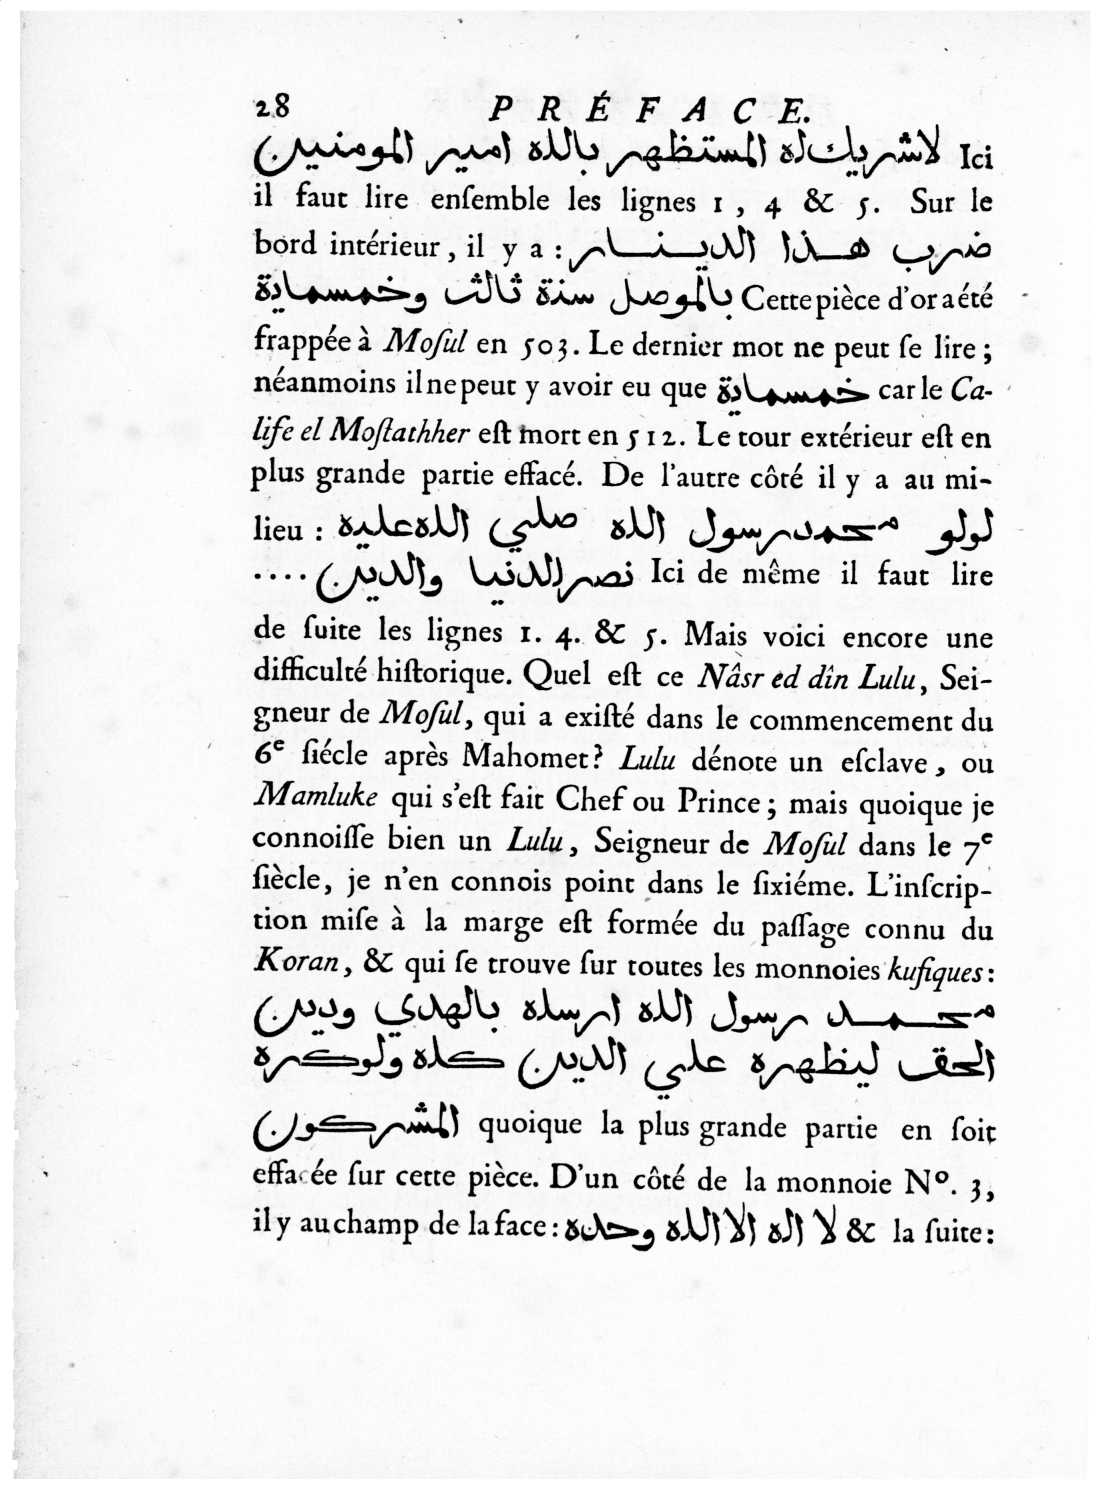 28 PRÉFACE.
لاشريك له المستظهر بالله امير المومنين Ici
il faut lire enſemble les lignes 1, 4 & 5. Sur le
bord intérieur, il y a : ضرب هذا الدينار
بالموصل سنة ثالث وخمسماية Cette pièce d'or a été
frappée à Moſul en 503. Le dernier mot ne peut ſe lire ;
néanmoins il ne peut y avoir eu que خمسماية car le Ca-
life el Moſtathher eſt mort en 512. Le tour extérieur eſt en
plus grande partie effacé. De l'autre côté il y a au mi-
lieu : لولو محمد رسول الله صلي الله عليه
نصر الدنيا والدين .... Ici de même il faut lire
de ſuite les lignes 1. 4. & 5. Mais voici encore une
difficulté hiſtorique. Quel eſt ce Nâsr ed dîn Lulu, Sei-
gneur de Moſul, qui a exiſté dans le commencement du
6e ſiécle après Mahomet? Lulu dénote un eſclave, ou
Mamluke qui s'eſt fait Chef ou Prince ; mais quoique je
connoiſſe bien un Lulu, Seigneur de Moſul dans le 7e
ſiècle, je n'en connois point dans le ſixiéme. L'inſcrip-
tion miſe à la marge eſt formée du paſſage connu du
Koran, & qui ſe trouve ſur toutes les monnoies kufiques :
محمد رسول الله ارسله بالهدي ودين
الحق ليظهره علي الدين كله ولوكره
المشركون quoique la plus grande partie en ſoit
effacée ſur cette pièce. D'un côté de la monnoie No. 3,
il y au champ de la face : لا اله الا الله وحده & la ſuite :